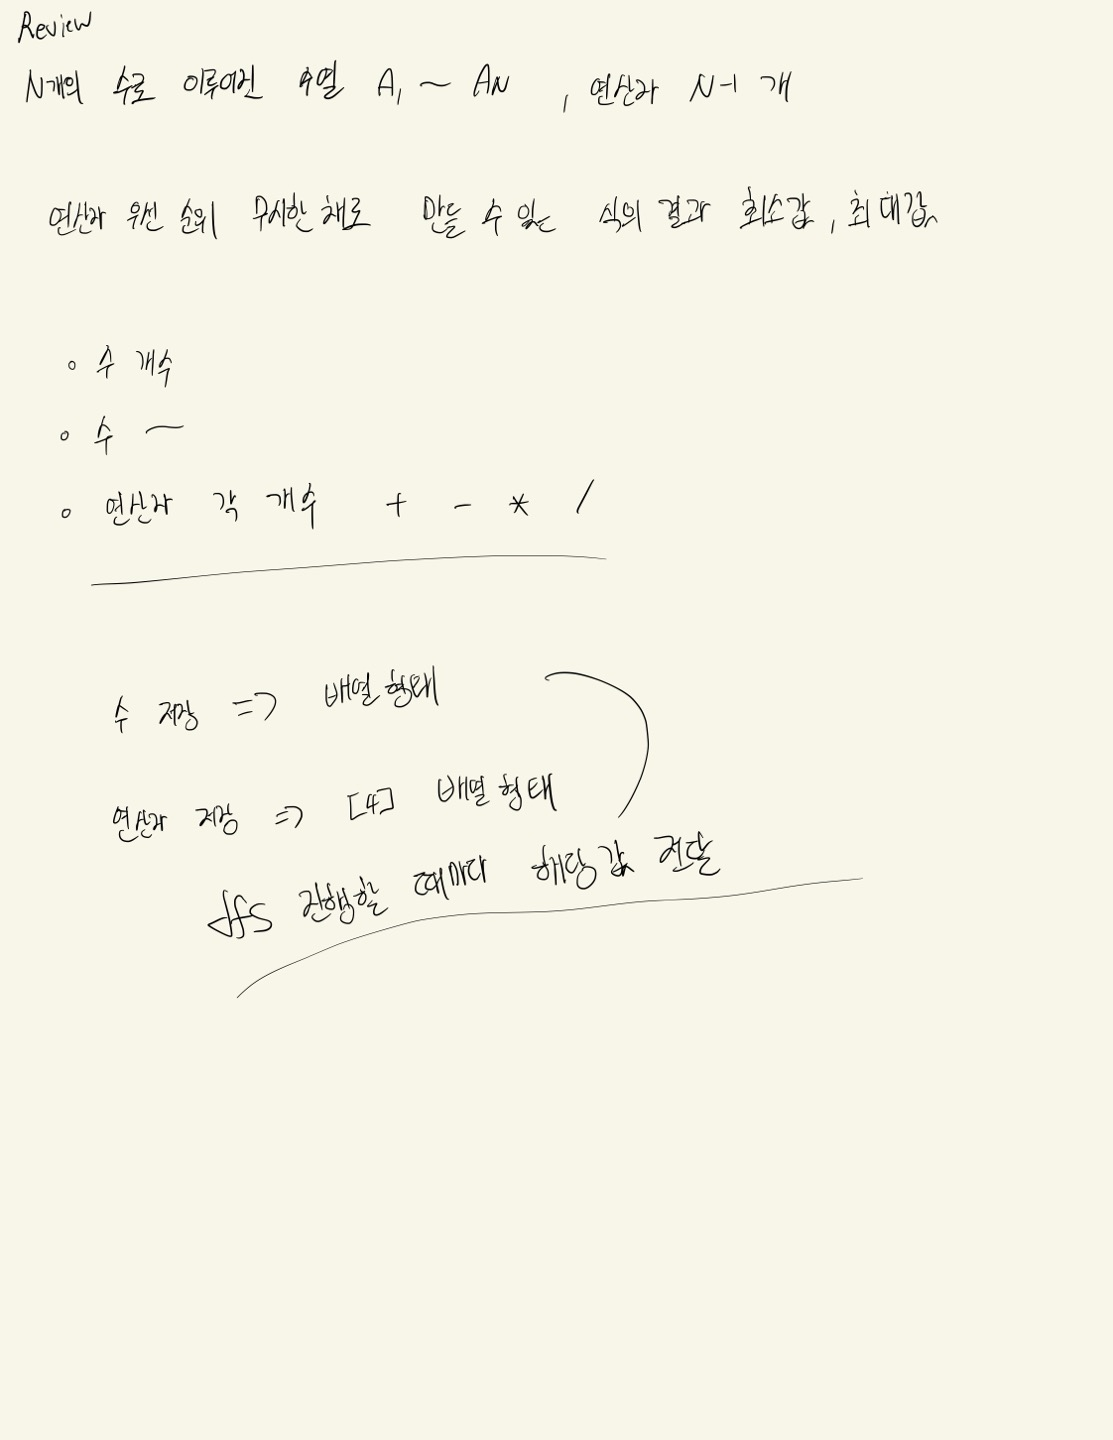 Review
N개의 수로 이루어진 수열 A₁ ~ AN , 연산자 N-1 개
연산자 우선 순위 무시한 채로 만들 수 있는 식의 결과 최소값, 최대값
◦ 수 개수
◦ 수 ~
◦ 연산자 각 개수 + - * /
수 저장 => 배열 형태
연산자 저장 => [4] 배열 형태
dfs 진행할 때마다 해당 값 전달